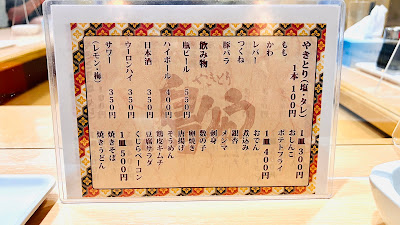 やきとり(塩・タレ)
1本 100円
もも
かわ
レバー
つくね
豚バラ
飲み物
瓶ビール 550円
ハイボール 400円
日本酒 350円
ウーロンハイ 350円
サワー 350円
(レモン・梅)
1皿 300円
おしんこ
ポテトフライ
1皿 400円
おでん
煮込み
銀杏
メンマ
刺身
数の子
卵焼き
唐揚げ
そうめん
鶏皮キムチ
豆腐サラダ
くじらベーコン
1皿 500円
焼きそば
焼きうどん
やきとり